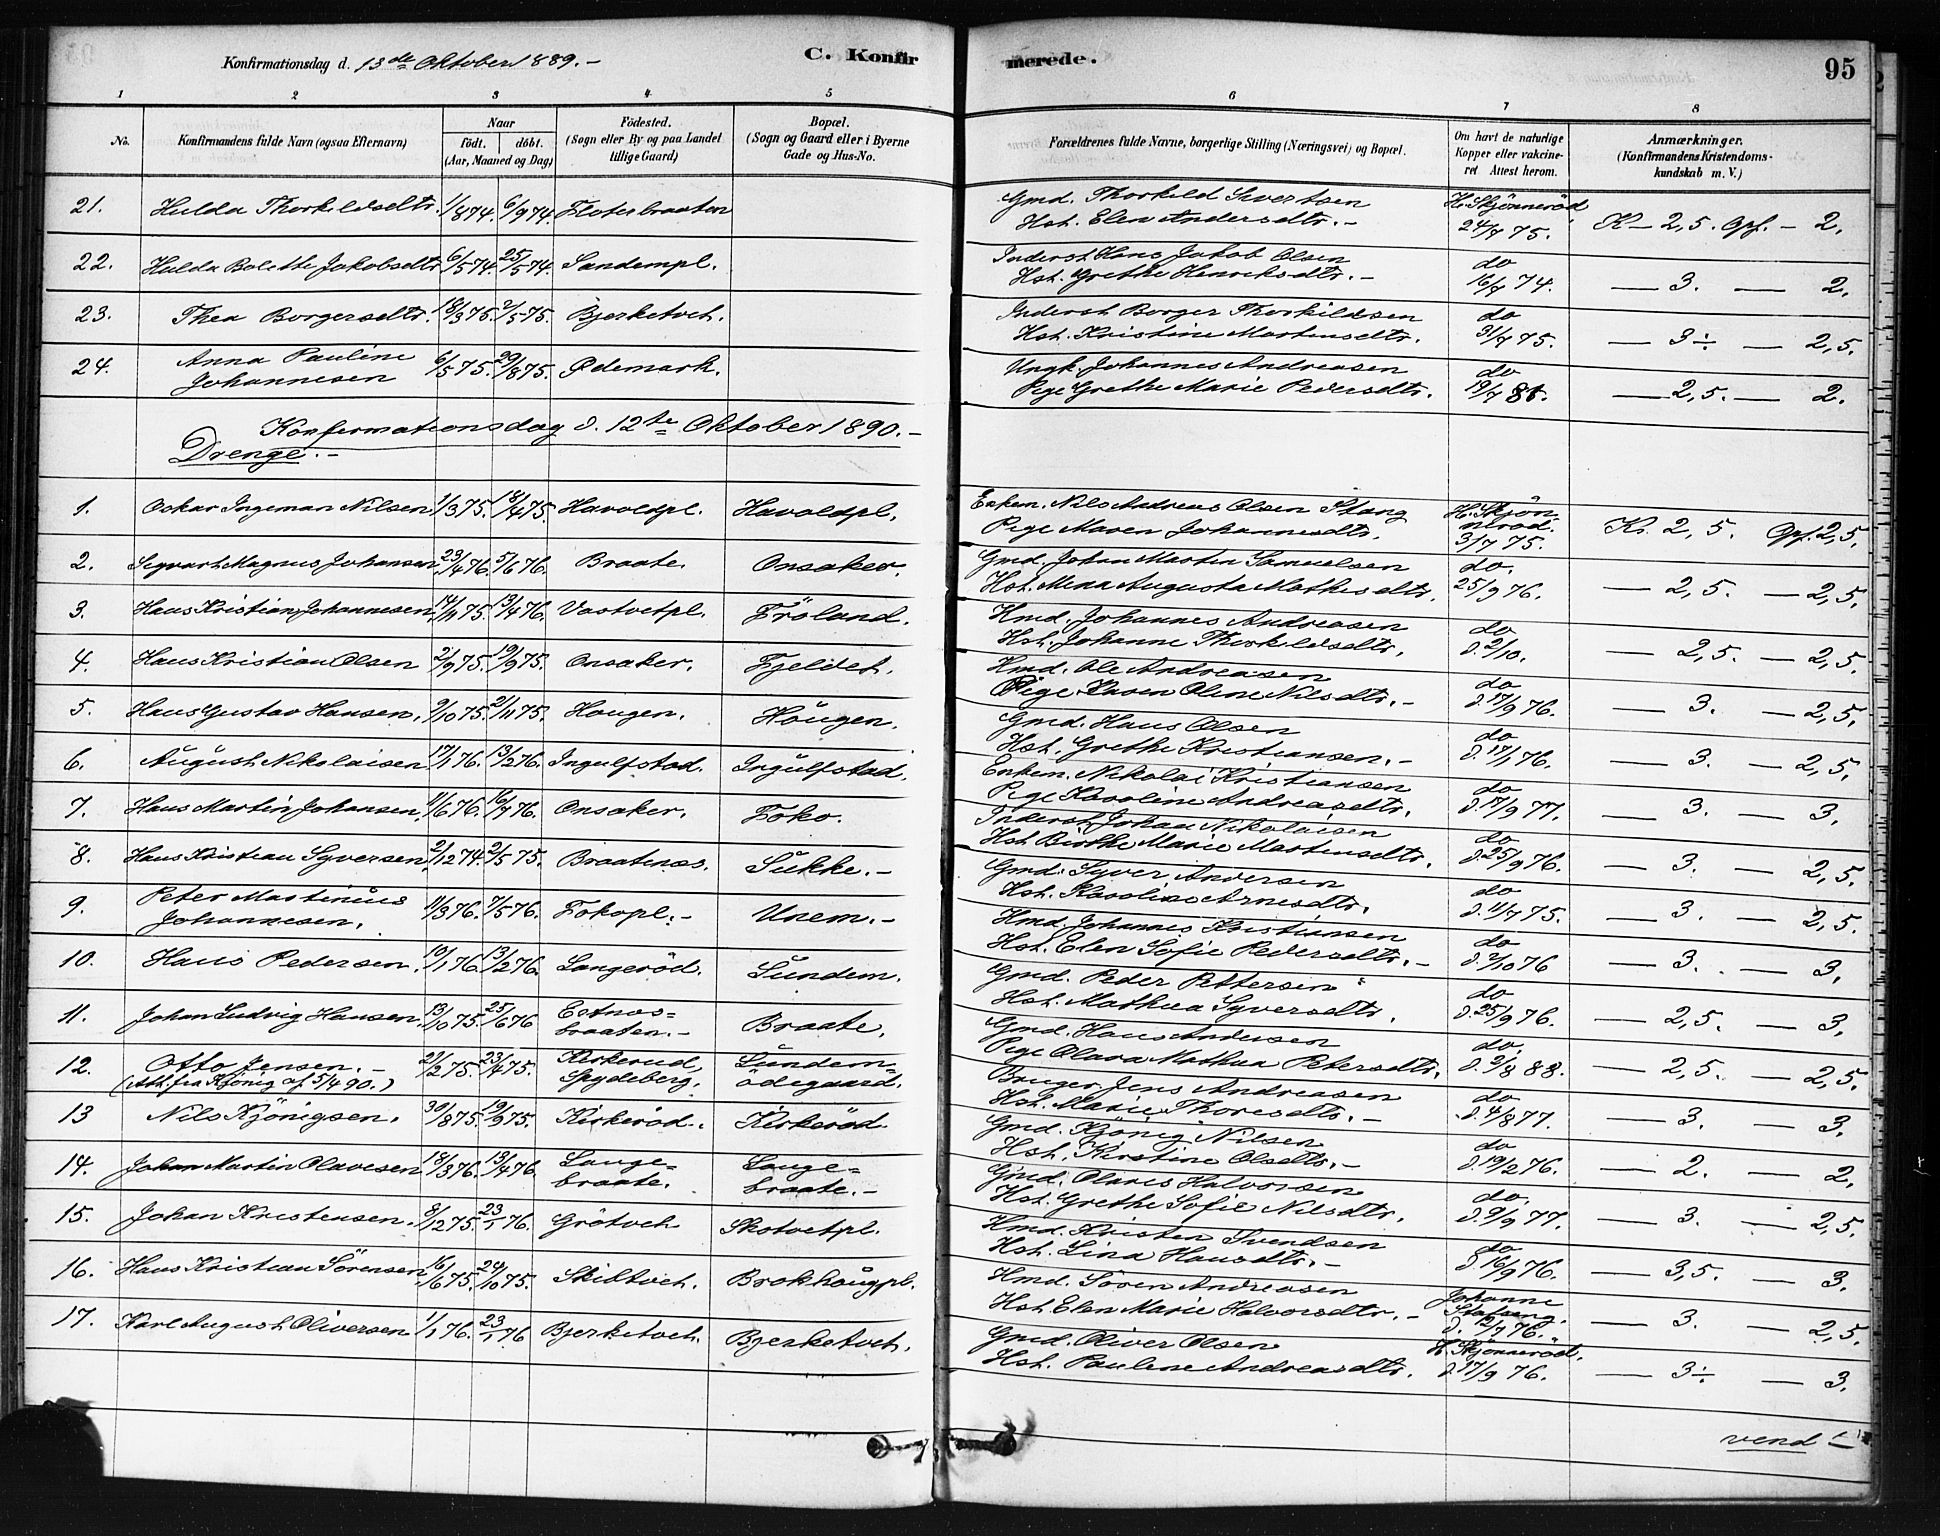 Konfirmationsdag d. 13de Oktober 1889. – C. Konfirmerede. 95
1 2 3 4 5 6 7 8
No. Konfirmandens fulde Navn (ogsaa Efternavn) Naar født. døbt. (Aar, Maaned og Dag) Fødested. (Sogn eller By og paa Landet tillige Gaard) Bopæl. (Sogn og Gaard eller i Byerne Gade og Hus-No. Forældrenes fulde Navne, borgerlige Stilling (Næringsvei) og Bopæl. Om havt de naturlige Kopper eller vakcineret Attest herom. Anmærkninger. (Konfirmandens Kristendomskundskab m. V.)
21. Hulda Thorkildsdtr. 1/8 74. 6/9 74. Floterbraaten Gmd. Thorkild Sivertsen
Hst. Elen Andersdtr. – H. Skjønnerød 24/7 75. K – 2,5. Opf. – 2.
22. Hulda Bolette Jakobsdtr. 6/5 74. 25/5 74. Sandempl. Inderst Hans Jakob Olsen
Hst. Grethe Hinriksdtr. – do 16/7 74. — 3. — 2.
23. Thea Borgersdtr. 18/3 75. 2/5 75. Bjerketvet. Inderst Borger Thorkildsen
Hst. Kristine Martensdtr. do 31/7 75. — 3÷ — 2,5.
24. Anna Pauline Johannesen 6/5 75. 29/8 75. Ødemark. Ungk. Johannes Andreasen
Pige Grethe Marie Pedersdtr. do 19/7 81. — 2,5. — 2.
Konfirmationsdag d. 12te Oktober 1890. –
Drenge. –
1. Oskar Ingeman Nilsen. 1/3 75. 18/4 75. Havoldpl. Havoldpl. Enkem. Nils Andreas Olsen Stang
Pige Maren Johannesdtr. H. Skjønnerød. 31/7 75. K. 2,5. Opf. 2,5.
2. Sigvart Magnus Johansen 23/4 76. 5/6 76. Braate. Onsaker. Gmd. Johan Martin Samuelsen
Hst. Mina Augusta Mathisdtr. do. 25/9 76. — 2,5. — 2,5.
3. Hans Kristian Johannesen. 14/11 75. 13/4 76. Vastvetpl. Fröland. Hmd. Johannes Andreasen
Hst. Johanne Thorkildsdtr. do d. 2/10. — 2,5. — 2,5.
4. Hans Kristian Olsen 2/9 75. 19/9 75. Onsaker. Fjeldet. Hmd. Ole Andreasen
Pige Karen Oline Nilsdtr. – do d. 17/9 76. — 3. — 2,5.
5. Hans Gustav Hansen. 9/10 75. 21/11 75. Hougen. Hougen. Gmd. Hans Olsen
Hst. Grethe Kristiansen. – do d. 17/1 76. — 3. — 2,5.
6. August Nikolaisen 17/1 76. 13/2 76. Ingulfstad. Ingulfstad. Enkem. Nikolai Kristiansen
Pige Karoline Andreasdtr. do d. 17/9 77. — 3. — 3.
7. Hans Martin Johansen. 11/6 76. 16/7 76. Onsaker. Foko. Inderst Johan Nikolaisen
Hst. Birthe Marie Martensdtr. do d. 25/9 76. — 3. — 2,5.
8. Hans Kristian Syversen. 2/12 74. 2/5 75. Braatenes. Sukke. – Gmd. Syver Andersen
Hst. Karoline Arnesdtr. do d. 11/7 75. — 3. — 2,5.
9. Peter Martinius Johannesen. 11/3 76. 7/5 76. Fokopl. – Unem. – Hmd. Johannes Kristiansen
Hst. Elen Sofie Pedersdtr. – do d. 2/10 76 — 3. — 3.
10. Hans Pedersen. 19/1 76. 13/2 76. Langeröd. Sundem. Gmd. Peder Pettersen
Hst. Mathea Syversdtr. do d. 25/9 76. — 2,5. — 3.
11. Johan Ludvig Hansen. 13/10 75. 25/6 76 Estnesbraaten. – Braate. Gmd. Hans Andersen
Pige Olava Mathea Petersdtr. do. d. 2/8 88. — 2,5. — 2,5.
12. Otto Jensen. –
(Att. fra Kjönig af 5/4 90.) 21/2 75. 23/4 75. Kirkerud, Spydeberg. Sundemödegaard. Bruger Jens Andreasen
Hst. Marie Thoresdtr. – do d. 4/8 77. — 3. — 3.
13 Nils Kjönigsen. 30/8 75. 19/9 75. Kirkeröd. Kirkeröd. Gmd. Kjønig Nilsen
Hst. Kirstine Olsdtr. – do d. 19/2 76. — 2. — 2.
14. Johan Martin Olavesen. 18/3 76. 13/4 76. Langebraate. Langebraate. – Gmd. Olaves Halvorsen
Hst. Grethe Sofie Nilsdtr. do. d. 9/9 77. — 3. — 2,5.
15. Johan Kristensen. 8/12 75. 23/1 76. Grötvet Skotvetpl. Hmd. Kristen Svendsen
Hst. Lina Hansdtr. – do d. 16/9 76. — 3,5. — 3.
16. Hans Kristian Sörensen 16/6 75. 24/10 75. Skibtvet. Brokhougpl. Hmd. Sören Andreasen
Hst. Elen Marie Halvorsdtr. – Johanne d. 12/7 76. — 3. — 2,5.
17. Karl August Oliversen 1/1 76. 23/1 76 Bjerketvet. Bjerketvet. Gmd. Oliver Olsen
Hst. Pauline Andreasdtr. H. Skjønnerød. d. 17/9 76. — 3÷ — 3.
vend